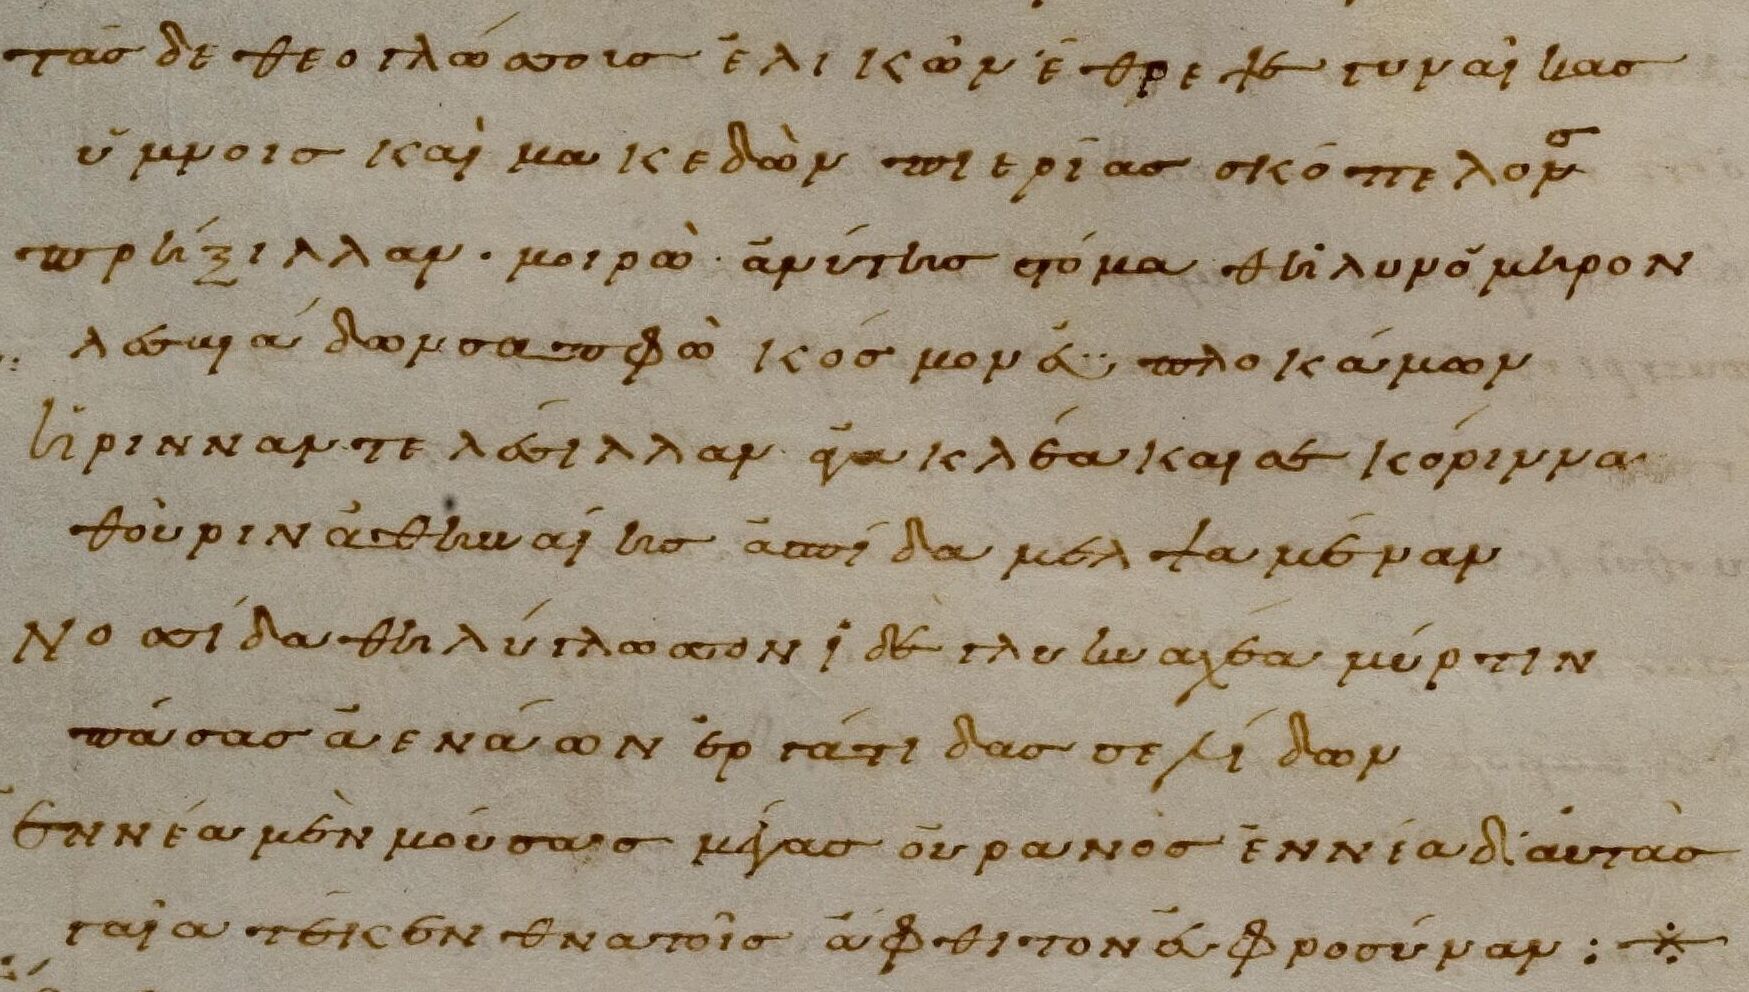 τάσδε θεογλώσσους ἑλικὼν ἔθρεψε γυναῖκας
ὕμνοις καὶ μακεδὼν πιερίας σκόπελος
πρήξιλλαν· μοιρώ· ἀνύτης στόμα θῆλυν ὅμηρον
λεσβιάδων σαπφὼ κόσμον ἐϋπλοκάμων
ἤρινναν τελέσιλλαν ἀγακλέα καὶ σὲ κόριννα
θοῦριν ἀθηναίης ἀσπίδα μελψαμέναν
νοσσίδα θηλύγλωσσον ἰδὲ γλυκυαχέα μύρτιν
πάσας ἀενάων ἐργάτιδας σελίδων
ἐννέα μὲν μούσας μέγας οὐρανός ἐννέα δ' αὐτὰς
γαῖα τέκεν θνατοῖς ἄφθιτον εὐφροσύναν :